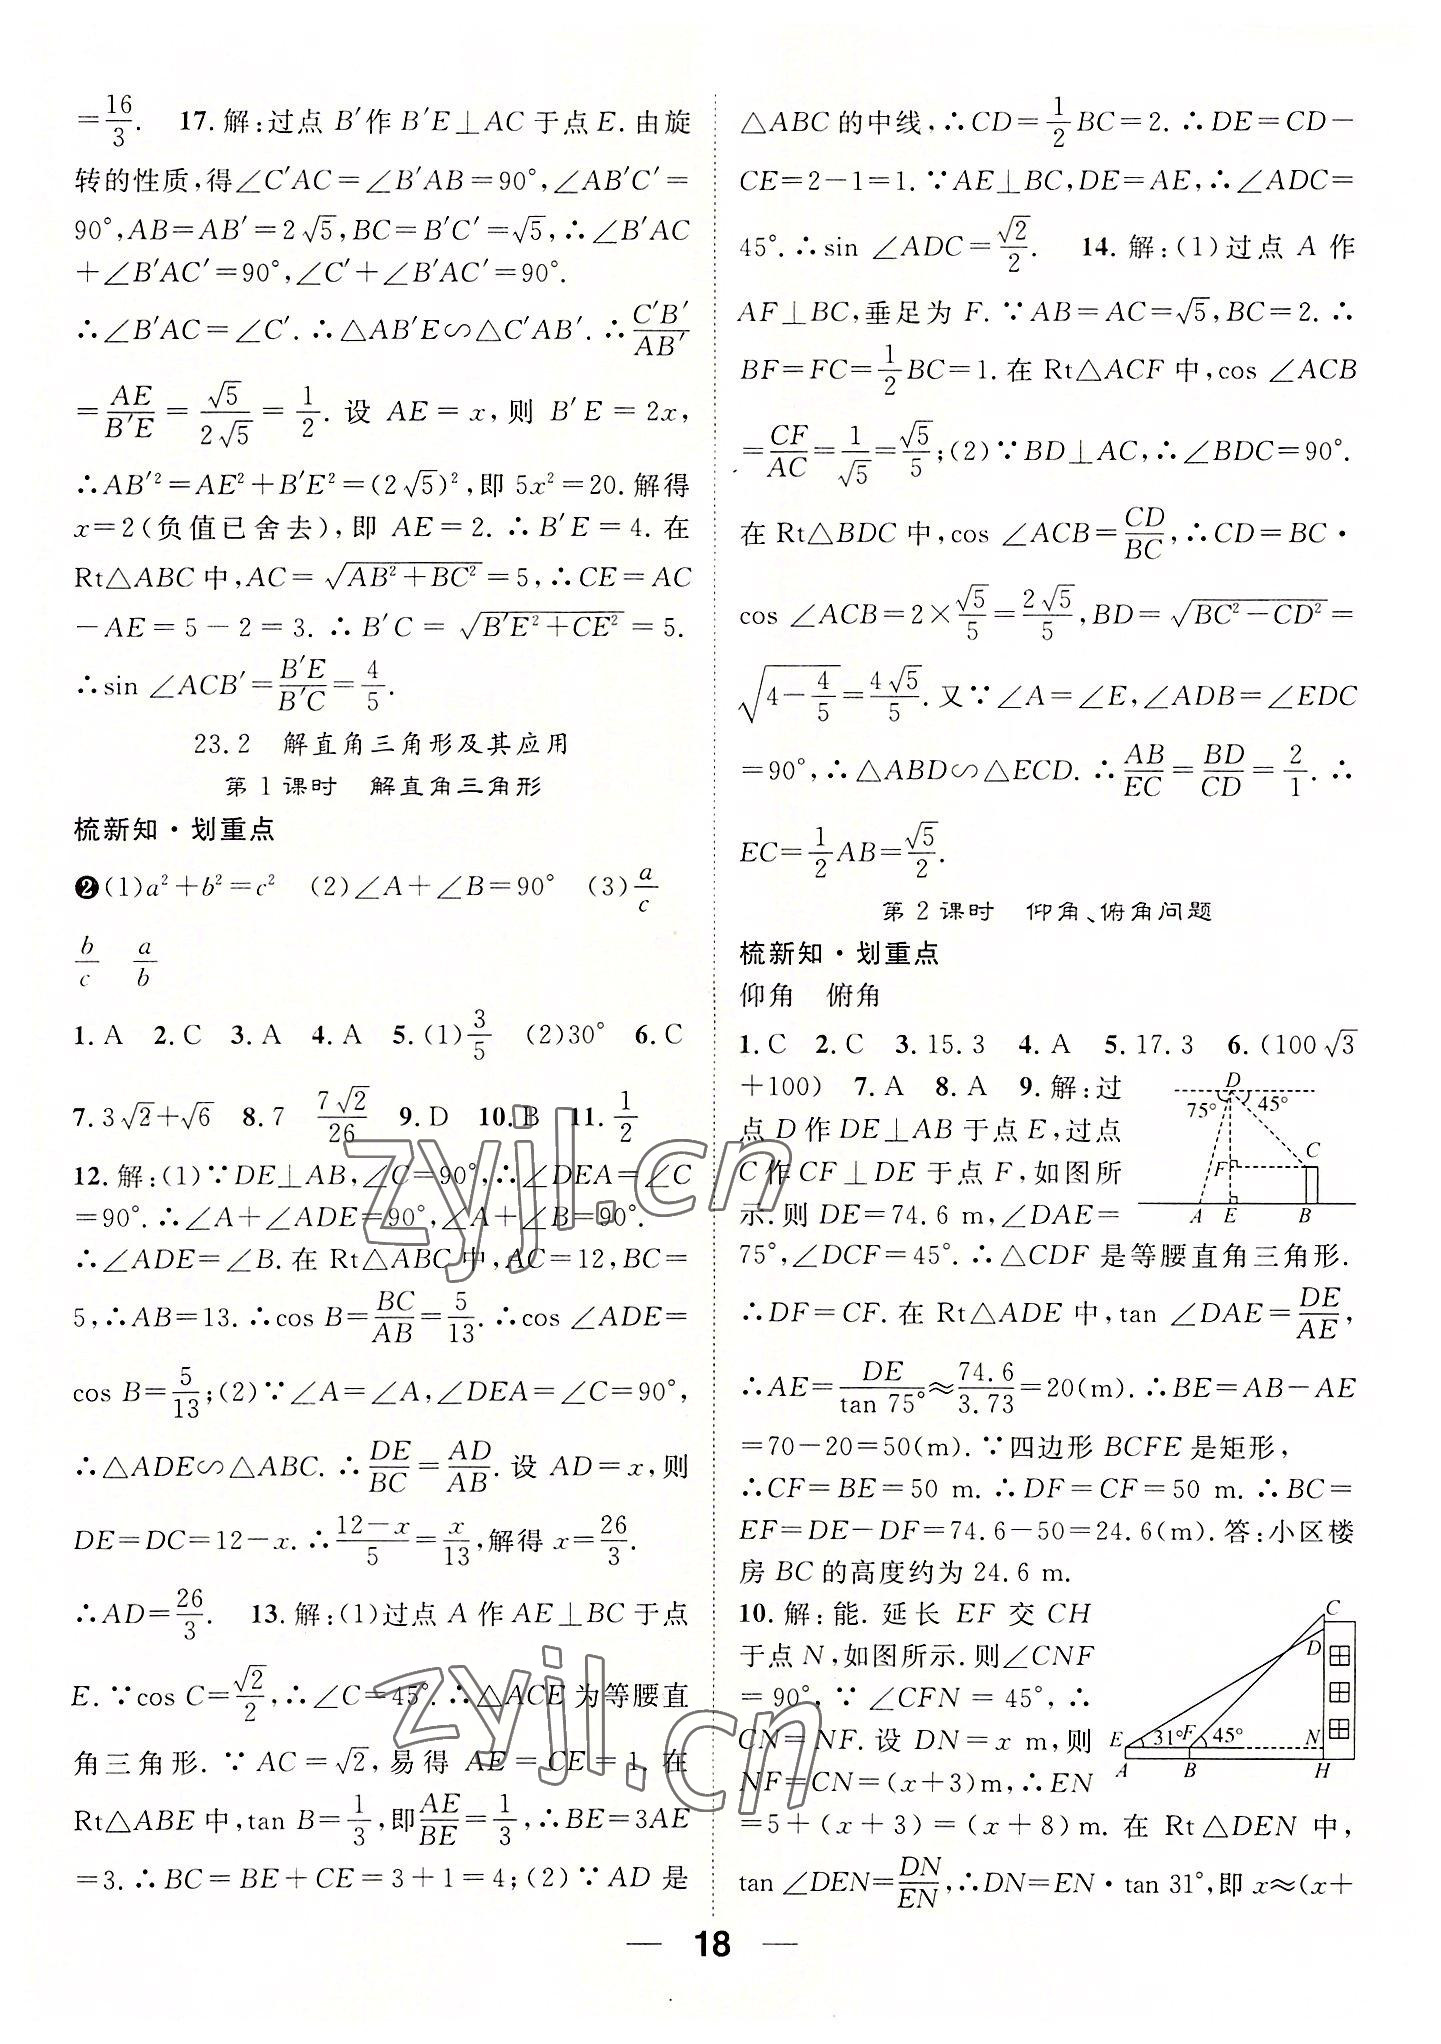 =16/3. 17.解:过点 B′作 B′E⊥AC 于点 E.由旋
转的性质,得∠C′AC=∠B′AB=90°,∠AB′C′=
90°,AB=AB′=2√5,BC=B′C′=√5,∴∠B′AC
+∠B′AC′=90°,∠C′+∠B′AC′=90°.
∴∠B′AC=∠C′.∴△AB′E∽△C′AB′.∴C′B′/AB′
=AE/B′E=√5/2√5=1/2.设 AE=x,则 B′E=2x,
∴AB′²=AE²+B′E²=(2√5)²,即 5x²=20.解得
x=2(负值已舍去),即 AE=2.∴B′E=4.在
Rt△ABC 中,AC=√(AB²+BC²)=5,∴CE=AC
-AE=5-2=3.∴B′C=√(B′E²+CE²)=5.
∴sin ∠ACB′=B′E/B′C=4/5.
23.2 解直角三角形及其应用
第 1 课时 解直角三角形
梳新知·划重点
❷(1)a²+b²=c² (2)∠A+∠B=90° (3)a/c
b/c a/b
1.A 2.C 3.A 4.A 5.(1)3/5 (2)30° 6.C
7.3√2+√6 8.7 7√2/26 9.D 10.B 11.1/2
12.解:(1)∵DE⊥AB,∠C=90°,∴∠DEA=∠C
=90°.∴∠A+∠ADE=90°,∠A+∠B=90°.
∴∠ADE=∠B.在 Rt△ABC 中,AC=12,BC=
5,∴AB=13.∴cos B=BC/AB=5/13.∴cos ∠ADE=
cos B=5/13;(2)∵∠A=∠A,∠DEA=∠C=90°,
∴△ADE∽△ABC.∴DE/BC=AD/AB.设 AD=x,则
DE=DC=12-x.∴(12-x)/5=x/13,解得 x=26/3.
∴AD=26/3. 13.解:(1)过点 A 作 AE⊥BC 于点
E.∵cos C=√2/2,∴∠C=45°.∴△ACE 为等腰直
角三角形.∵AC=√2,易得 AE=CE=1.在
Rt△ABE 中,tan B=1/3,即AE/BE=1/3,∴BE=3AE
=3.∴BC=BE+CE=3+1=4;(2)∵AD 是
△ABC 的中线,∴CD=1/2BC=2.∴DE=CD-
CE=2-1=1.∵AE⊥BC,DE=AE,∴∠ADC=
45°.∴sin ∠ADC=√2/2. 14.解:(1)过点 A 作
AF⊥BC,垂足为 F.∵AB=AC=√5,BC=2.∴
BF=FC=1/2BC=1.在 Rt△ACF 中,cos ∠ACB
=CF/AC=1/√5=√5/5;(2)∵BD⊥AC,∴∠BDC=90°.
在 Rt△BDC 中,cos ∠ACB=CD/BC,∴CD=BC·
cos ∠ACB=2×√5/5=2√5/5,BD=√(BC²-CD²)=
√(4-4/5)=4√5/5.又∵∠A=∠E,∠ADB=∠EDC
=90°,∴△ABD∽△ECD.∴AB/EC=BD/CD=2/1.∴
EC=1/2AB=√5/2.
第 2 课时 仰角、俯角问题
梳新知·划重点
仰角 俯角
1.C 2.C 3.15.3 4.A 5.17.3 6.(100√3
+100) 7.A 8.A 9.解:过
点 D 作 DE⊥AB 于点 E,过点
C 作 CF⊥DE 于点 F,如图所
示.则 DE=74.6 m,∠DAE=
D
75° 45°
F C
A E B
75°,∠DCF=45°.∴△CDF 是等腰直角三角形.
∴DF=CF.在 Rt△ADE 中,tan ∠DAE=DE/AE,
∴AE=DE/tan 75°≈74.6/3.73=20(m).∴BE=AB-AE
=70-20=50(m).∵四边形 BCFE 是矩形,
∴CF=BE=50 m.∴DF=CF=50 m.∴BC=
EF=DE-DF=74.6-50=24.6(m).答:小区楼
房 BC 的高度约为 24.6 m.
10.解:能.延长 EF 交 CH
于点 N,如图所示.则∠CNF
=90°,∵∠CFN=45°,∴
CN=NF.设 DN=x m,则
NF=CN=(x+3)m,∴EN
C
D
E 31° F 45° N
A B H
=5+(x+3)=(x+8)m.在 Rt△DEN 中,
tan ∠DEN=DN/EN,∴DN=EN·tan 31°,即 x≈(x+
— 18 —
zyjl.cn
zyjl.cn